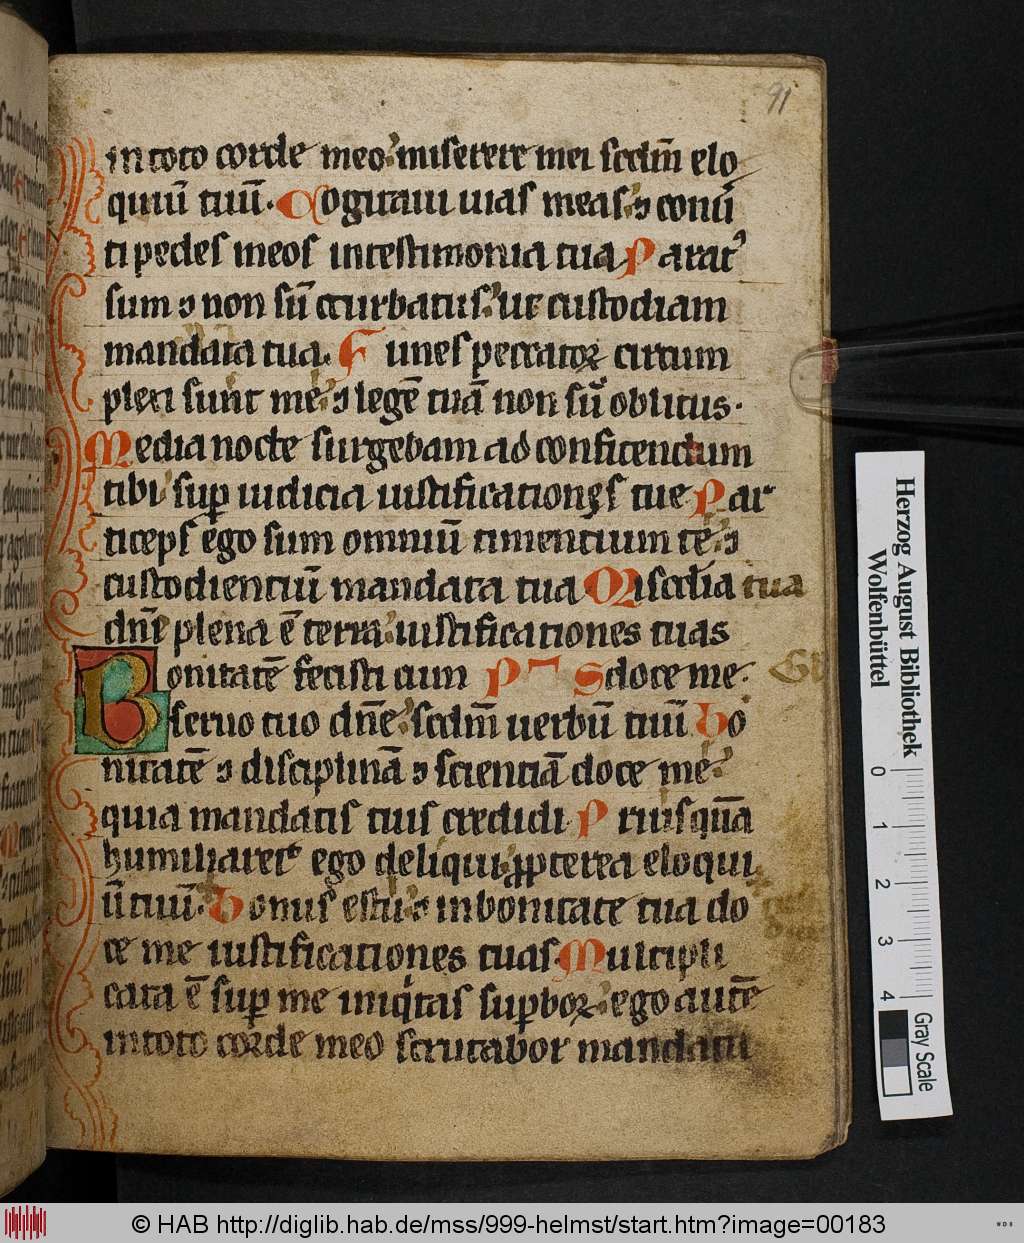 91
in toto corde meo miserere mei scdm̄ elo
quiū tuū. Cogitaui uias meas ͻ conũ
ti pedes meos in testimonia tua Parat᾽
sum ͻ non sū ↄturbatus ut custodiam
mandata tua. Funes peccatoꝝ circum
plexi sunt me ͻ legē tuā non sū oblitus.
Media nocte surgebam ad confitendum
tibi suꝑ iudicia iustificationes tue Par
ticeps ego sum omniū timentium te ͻ
custodientiū mandata tua Miscd̄ia tua
dn̄e plena ē terra iustificationes tuas
Bonitatē fecisti cum P S doce me.
seruo tuo dn̄e scdm̄ uerbū tuū Bo
nitatē ͻ disciplinā ͻ scientiā doce me
quia mandatis tuis credidi Priusqūa
humiliarer ego deliqui ꝓpterea eloqui
ū tuū. Bonus es tu ͻ in bonitate tua do
ce me iustificationes tuas Multipli
cata ē suꝑ me iniqͥtas suꝑboꝝ ego autē
in toto corde meo scrutabor mandata
Herzog August Bibliothek
Wolfenbüttel
0 1 2 3 4
Gray Scale
© HAB http://diglib.hab.de/mss/999-helmst/start.htm?image=00183